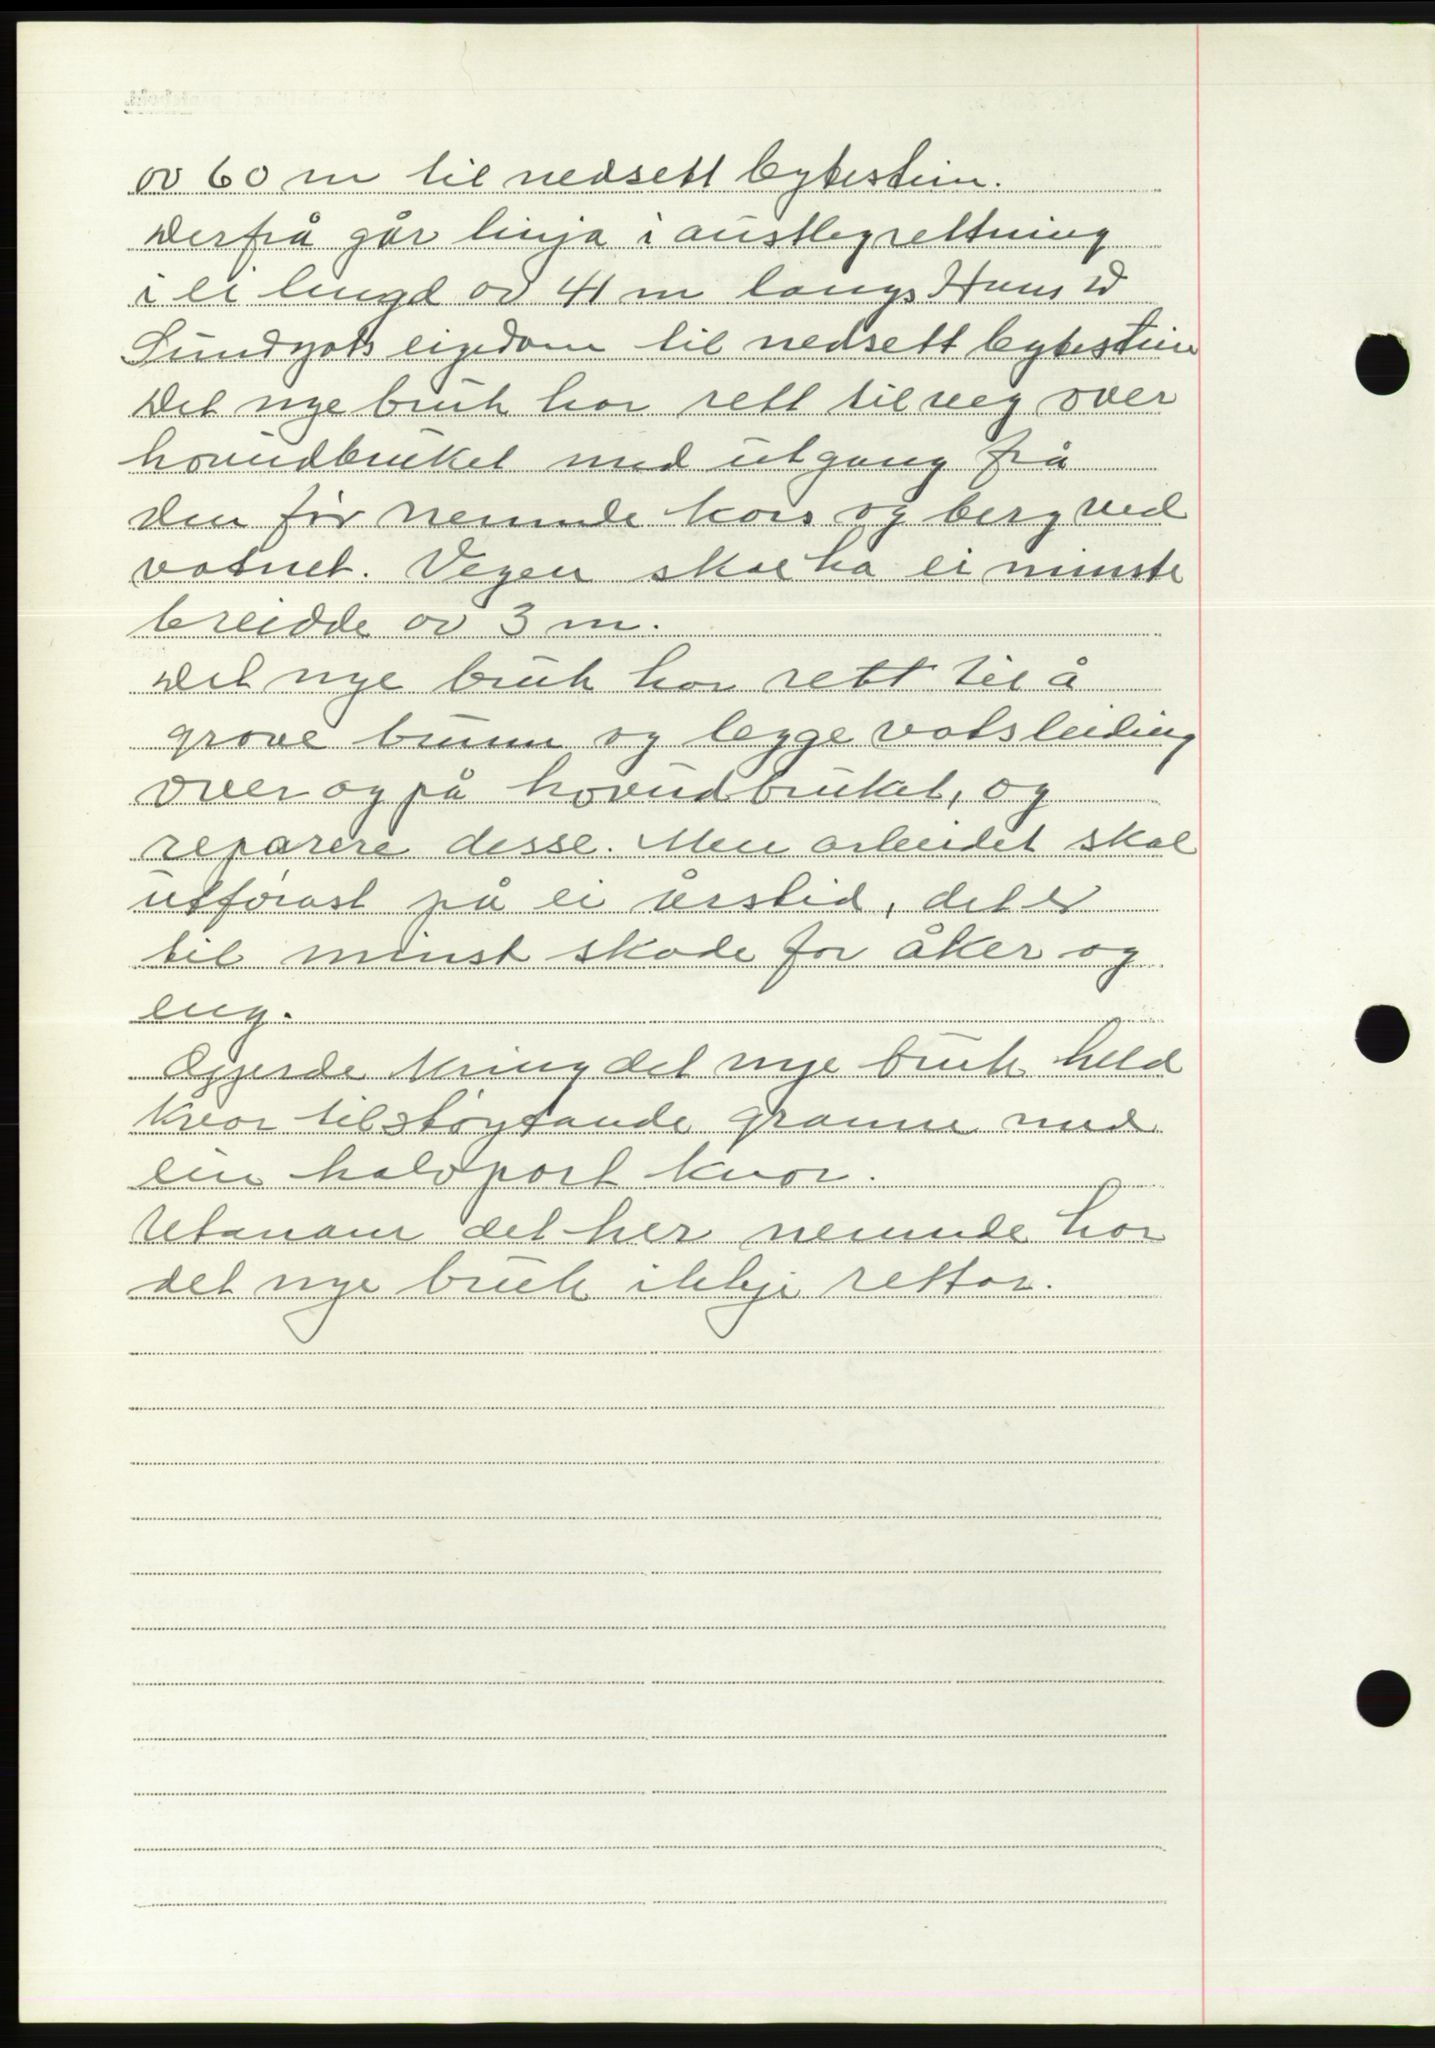 av 60 m til nedsett bytestein.
Derfrå går linja i austleg rettning
i ei lengd av 41 m langs Hans D
Sundgots eigedom til nedsett bytestein
Det nye bruk har rett til veg over
hovudbruket med utgang frå
den før nemnde kors og berg ved
vatnet. Vegen skal ha ei minste
breidde av 3 m.
Det nye bruk har rett til å
grave brunn og legge vatsleiding
over og på hovudbruket, og
reparere desse. Men arbeidet skal
utførast på ei årstid, det er
til minst skade for åker og
eng.
Gjerde kring det nye bruk held
kvar tilstøytande granne med
ein halvpart kvar.
Utanom det her nemnde har
det nye bruk ikkje rettar.